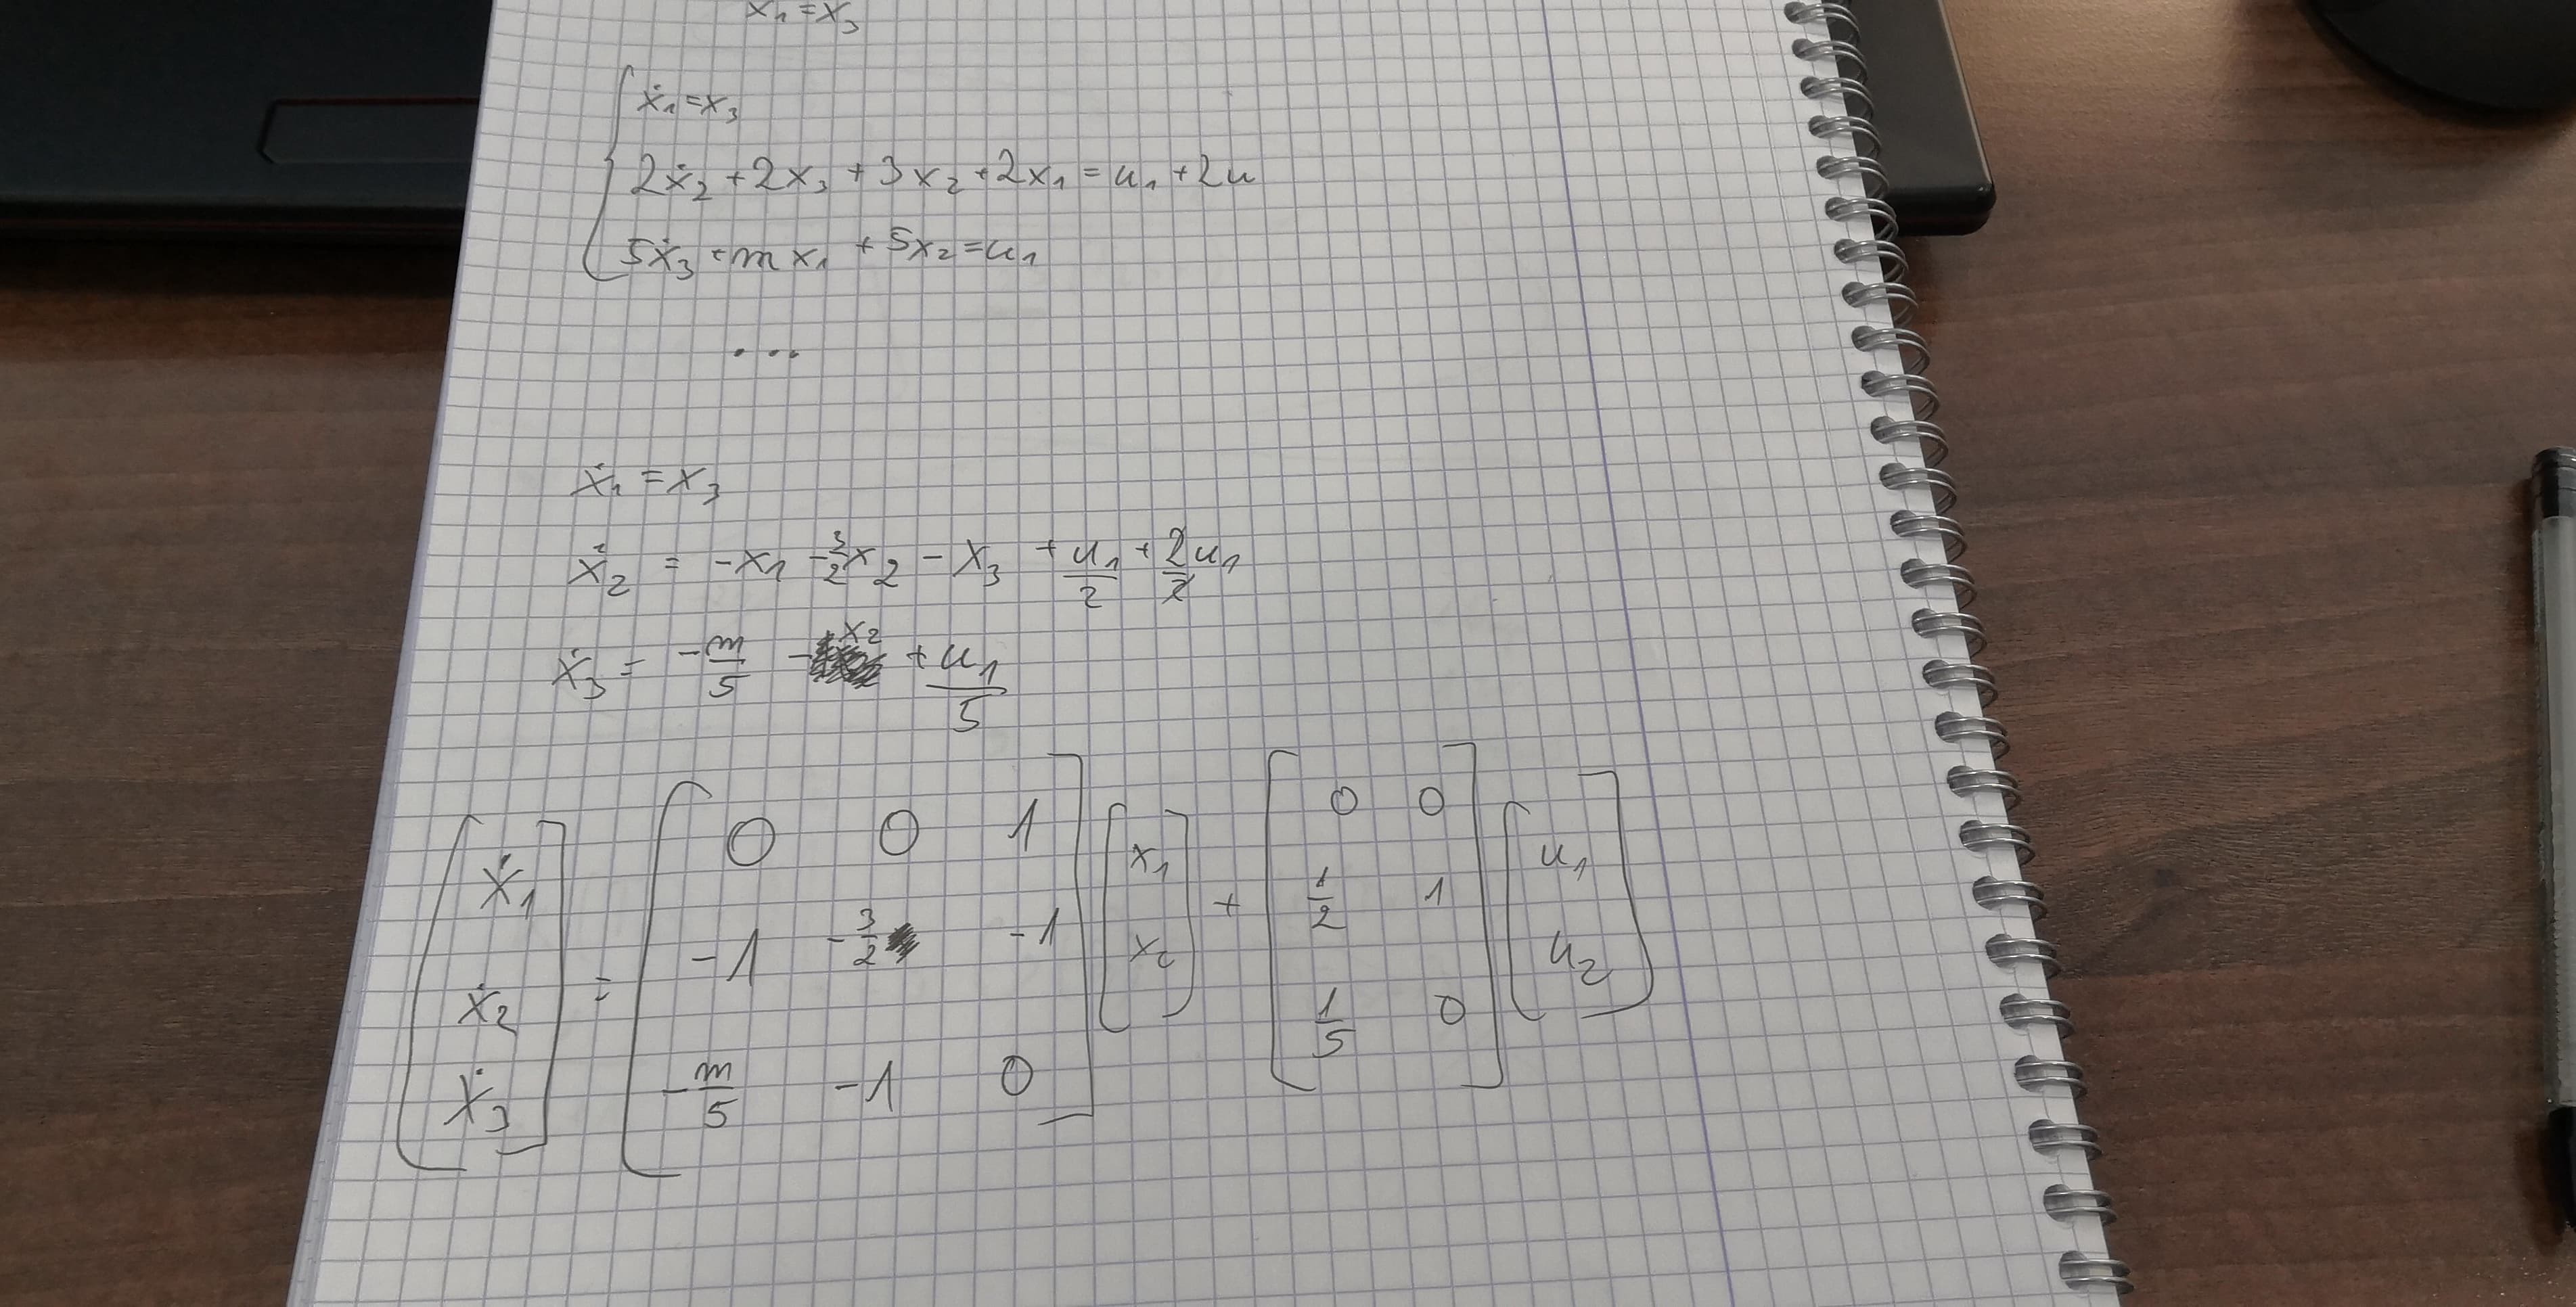 x₁=x₃
ẋ₁=x₃
2ẋ₂+2x₃+3x₂+2x₁=u₁+2u
5ẋ₃+mx₁+5x₂=u₁
...
ẋ₁=x₃
ẋ₂ = -x₁ -3/2x₂ - x₃ + u₁/2 + 2u₁/2
ẋ₃ = -m/5 - x₂ + u₁/5
[ẋ₁ ẋ₂ ẋ₃] = [0 0 1; -1 -3/2 -1; -m/5 -1 0] [x₁ x₂] + [0 0; 1/2 1; 1/5 0] [u₁ u₂]